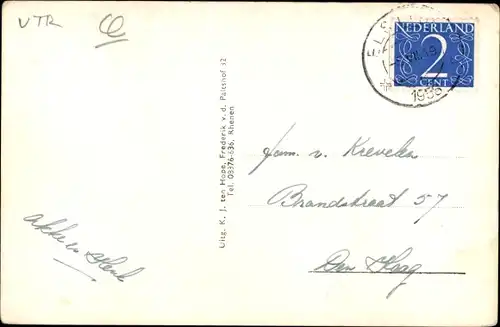 VTR
NEDERLAND
2
CENT
1956
Uitg. K. J. ten Hope, Frederik v. d. Paltshof 32
Tel. 08376-636, Rhenen
Fam. v. Krevelen
Brandstraat 57
Den Haag
Henk